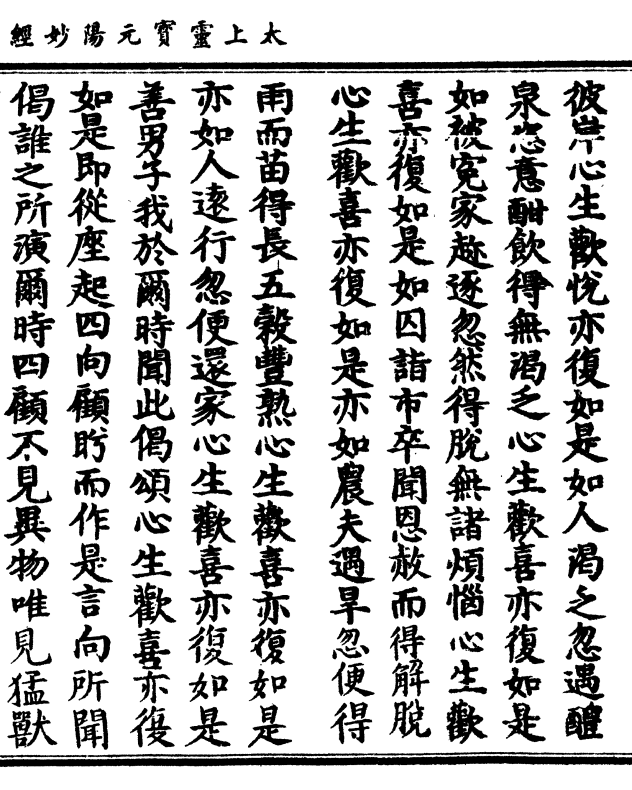 太上靈寳元陽妙經
彼岸心生歡悅亦復如是如人渴乏忽遇醴
泉恣意酣飲得無渴乏心生歡喜亦復如是
如被寃家趂逐忽然得脫無諸煩惱心生歡
喜亦復如是如囚詣市卒聞恩赦而得解脫
心生歡喜亦復如是亦如農夫遇旱忽便得
雨而苗得長五糓豐熟心生歡喜亦復如是
亦如人遠行忽便還家心生歡喜亦復如是
善男子我於爾時聞此偈頌心生歡喜亦復
如是即從座起四向顧眄而作是言向所聞
偈誰之所演爾時四顧不見異物唯見猛獸